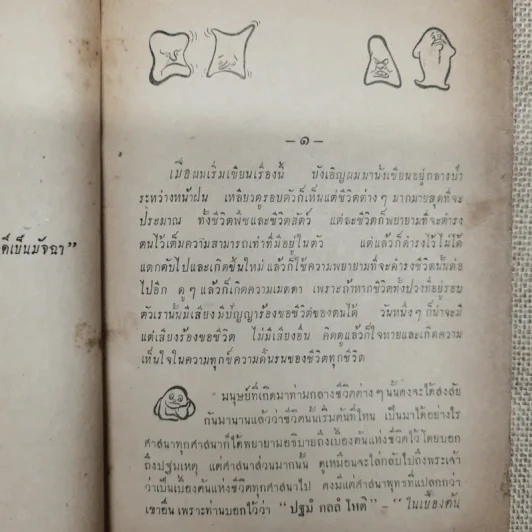 คิเป็นมัจฉา"
— ๑ —
เมื่อผมเริ่มเขียนเรื่องนี้ บังเอิญผมมานั่งเขียนอยู่กลางป่า
ระหว่างหน้าฝน เหลียวดูรอบตัวก็เห็นแต่ชีวิตต่าง ๆ มากมายสุดที่จะ
ประมาณ ทั้งชีวิตพืชและชีวิตสัตว์ แต่ละชีวิตก็พยายามที่จะดำรง
ตนไว้เต็มความสามารถเท่าที่มีอยู่ในตัว แต่แล้วก็ดำรงไว้ไม่ได้
แตกดับไปและเกิดขึ้นใหม่ แล้วก็ใช้ความพยายามที่จะดำรงชีวิตนั้นต่อ
ไปอีก ดู ๆ แล้วก็เกิดความเมตตา เพราะถ้าหากชีวิตทั้งปวงที่อยู่รอบ
ตัวเรานั้นมีเสียง มีปัญญาร้องขอชีวิตของตนได้ วันหนึ่ง ๆ ก็น่าจะมี
แต่เสียงร้องขอชีวิต ไม่มีเสียงอื่น คิดดูแล้วก็ใจหายและเกิดความ
เห็นใจในความทุกข์ความดิ้นรนของชีวิตทุกชีวิต
มนุษย์ที่เกิดมาท่ามกลางชีวิตต่าง ๆ นั้นคงจะได้สงสัย
กันมานานแล้วว่าชีวิตนั้นเริ่มต้นที่ไหน เป็นมาได้อย่างไร
ศาสนาทุกศาสนาก็ได้พยายามอธิบายถึงเบื้องต้นแห่งชีวิตไว้โดยบอก
ถึงปฐมเหตุ แต่ศาสนาส่วนมากนั้น ดูเหมือนจะไล่กลับไปถึงพระเจ้า
ว่าเป็นเบื้องต้นแห่งชีวิตทุกศาสนาไป คงมีแต่ศาสนาพุทธที่แปลกกว่า
เขาอื่น เพราะท่านบอกไว้ว่า "ปฐมํ กลลํ โหติ" – "ในเบื้องต้น